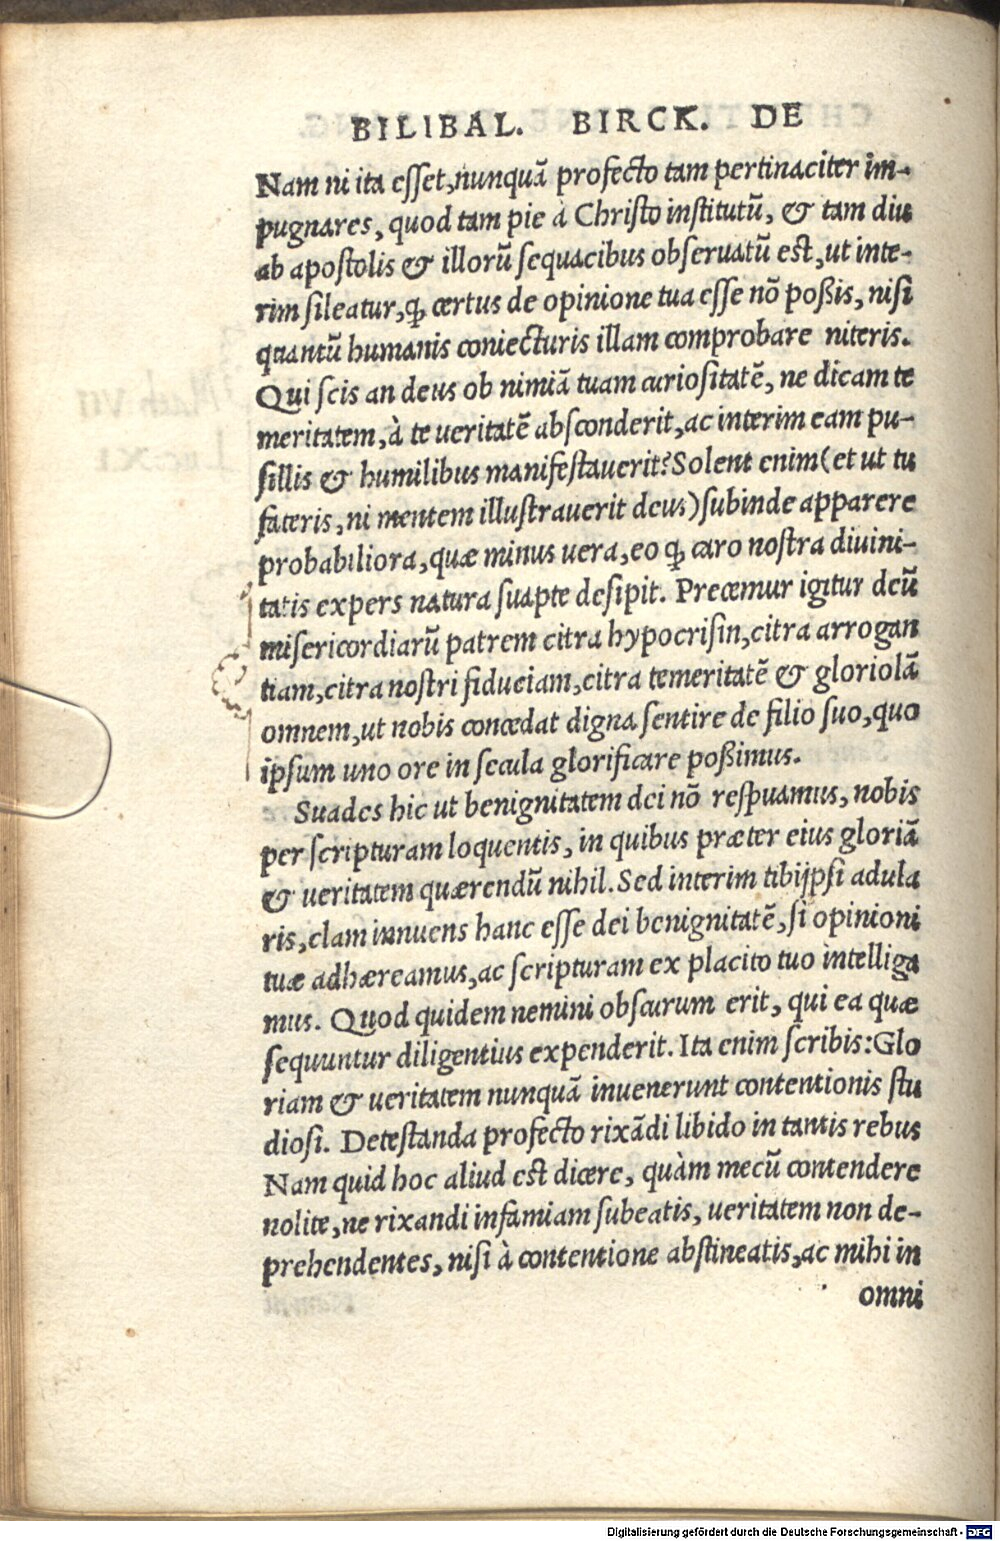 BILIBAL. BIRCK. DE
Nam ni ita esset, nunquã profecto tam pertinaciter im-
pugnares, quod tam pie à Christo institutũ, & tam diu
ab apostolis & illorũ sequacibus obseruatũ est, ut inte-
rim sileatur, ꝙ certus de opinione tua esse nõ poßis, nisi
quantũ humanis coniecturis illam comprobare niteris.
Qui scis an deus ob nimiã tuam curiositatẽ, ne dicam te
meritatem, à te ueritatẽ absconderit, ac interim eam pu-
sillis & humilibus manifestauerit? Solent enim (et ut tu
fateris, ni mentem illustrauerit deus) subinde apparere
probabiliora, quæ minus uera, eo ꝙ caro nostra diuini-
tatis expers natura suapte desipit. Precemur igitur deũ
misericordiarũ patrem citra hypocrisin, citra arrogan
tiam, citra nostri fiduciam, citra temeritatẽ & gloriolã
omnem, ut nobis concedat digna sentire de filio suo, quo
ipsum uno ore in secula glorificare poßimus.
Suades hic ut benignitatem dei nõ respuamus, nobis
per scripturam loquentis, in quibus præter eius gloriã
& ueritatem quærendũ nihil. Sed interim tibijpsi adula
ris, clam innuens hanc esse dei benignitatẽ, si opinioni
tuæ adhæreamus, ac scripturam ex placito tuo intelliga
mus. Quod quidem nemini obscurum erit, qui ea quæ
sequuntur diligentius expenderit. Ita enim scribis: Glo
riam & ueritatem nunquã inuenerunt contentionis stu
diosi. Detestanda profecto rixãdi libido in tantis rebus
Nam quid hoc aliud est dicere, quàm mecũ contendere
nolite, ne rixandi infamiam subeatis, ueritatem non de-
prehendentes, nisi à contentione abstineatis, ac mihi in
omni
Digitalisierung gefördert durch die Deutsche Forschungsgemeinschaft - DFG